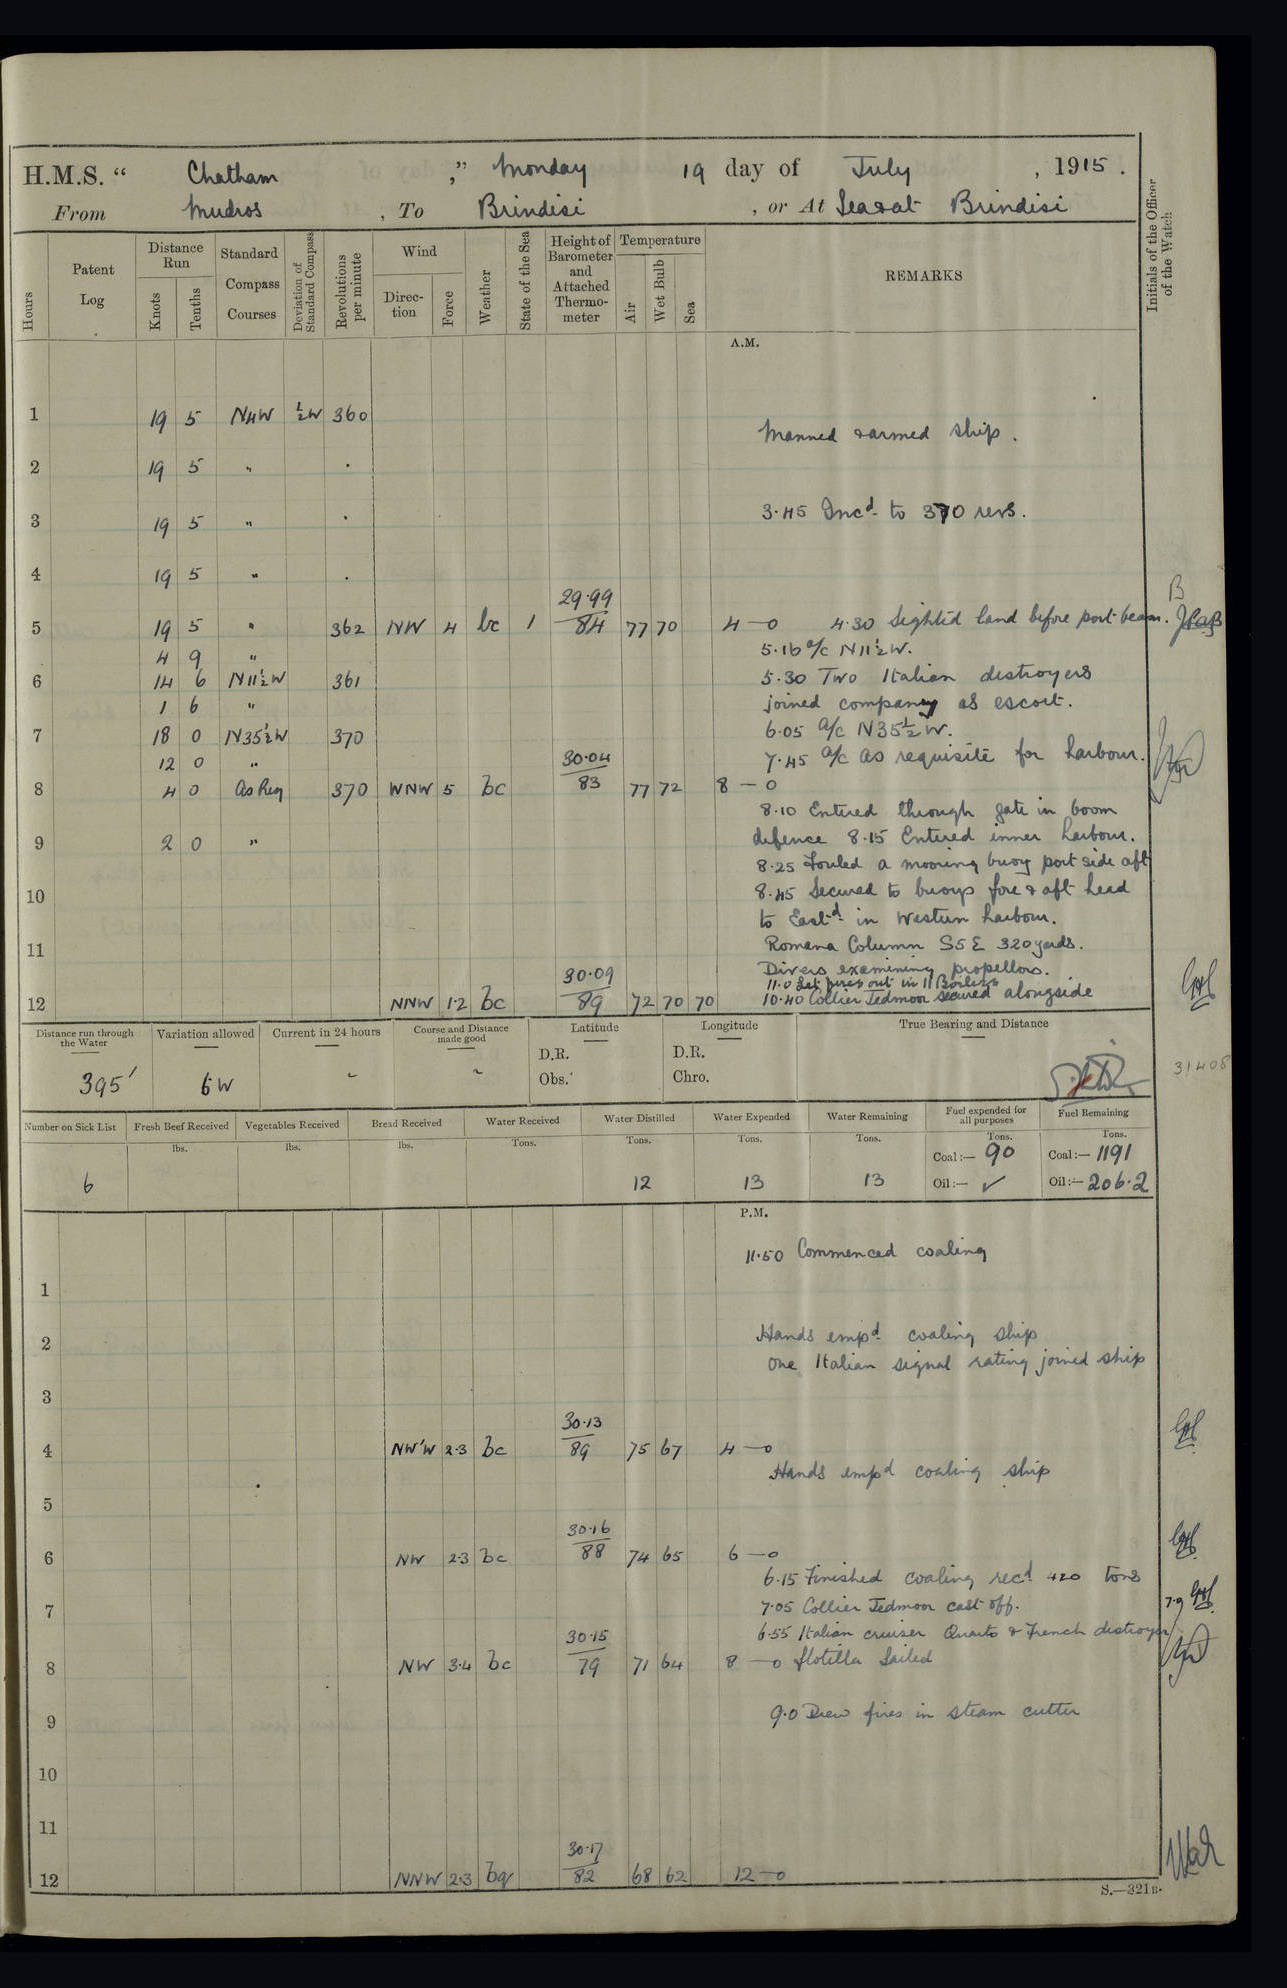 H.M.S. “ Chatham ,” Monday 19 day of July , 1915 .
From Mudros , To Brindisi , or At Sea & at Brindisi
Hours
Patent Log
Distance Run
Knots
Tenths
Standard Compass Courses
Deviation of Standard Compass
Revolutions per minute
Wind
Direction
Force
Weather
State of the Sea
Height of Barometer and Attached Thermometer
Temperature
Air
Wet Bulb
Sea
REMARKS
Initials of the Officer of the Watch
A.M.
1 19 5 N4W ½W 360
Manned & armed ship.
2 19 5 " .
3 19 5 " .
3.45 Incd. to 370 revs.
4 19 5 " .
29.99
5 19 5 " 362 NW 4 bc 1 84 77 70 4 — 0 4.30 Sighted land before port beam.
4 9 " 5.16 a/c N11½W.
6 14 6 N11½W 361 5.30 Two Italian destroyers
1 6 " joined company as escort.
7 18 0 N35½W 370 6.05 a/c N35½W.
12 0 " 30.04 7.45 a/c as requisite for harbour.
8 4 0 as Req 370 WNW 5 bc 83 77 72 8 — 0
8.10 Entered through gate in boom
9 2 0 " defence 8.15 Entered inner harbour.
8.25 Fouled a mooring buoy port side aft
10 8.45 Secured to buoys fore & aft head
to Eastd. in Western harbour.
11 Romana Column S5E 320 yards.
30.09 Divers examining propellors.
11.0 Let fires out in 11 Boilers
12 NNW 1.2 bc 89 72 70 70 10.40 Collier Jedmoor secured alongside
Distance run through the Water
Variation allowed
Current in 24 hours
Course and Distance made good
Latitude
Longitude
True Bearing and Distance
D.R. D.R.
395' 6W ~ ~ Obs. Chro.
31408
Number on Sick List
Fresh Beef Received
Vegetables Received
Bread Received
Water Received
Water Distilled
Water Expended
Water Remaining
Fuel expended for all purposes
Fuel Remaining
lbs. lbs. lbs. Tons. Tons. Tons. Tons. Tons. Tons.
Coal :— 90 Coal :— 1191
6 12 13 13 Oil :— ✓ Oil :— 206.2
P.M.
11.50 Commenced coaling
1
2 Hands empd. coaling ship
One Italian signal rating joined ship
3
30.13
4 NW'W 2.3 bc 89 75 67 4 — 0
Hands empd coaling ship
5
30.16
6 NW 2.3 bc 88 74 65 6 — 0
6.15 Finished coaling recd 420 tons
7 7.05 Collier Jedmoor cast off. 7.9
30.15 6.55 Italian cruiser Quarto & French destroyer
8 NW 3.4 bc 79 71 64 8 — 0 flotilla sailed
9 9.0 Drew fires in steam cutter
10
11
30.17
12 NNW 2.3 bq 82 68 62 12 — 0
S.—321B.